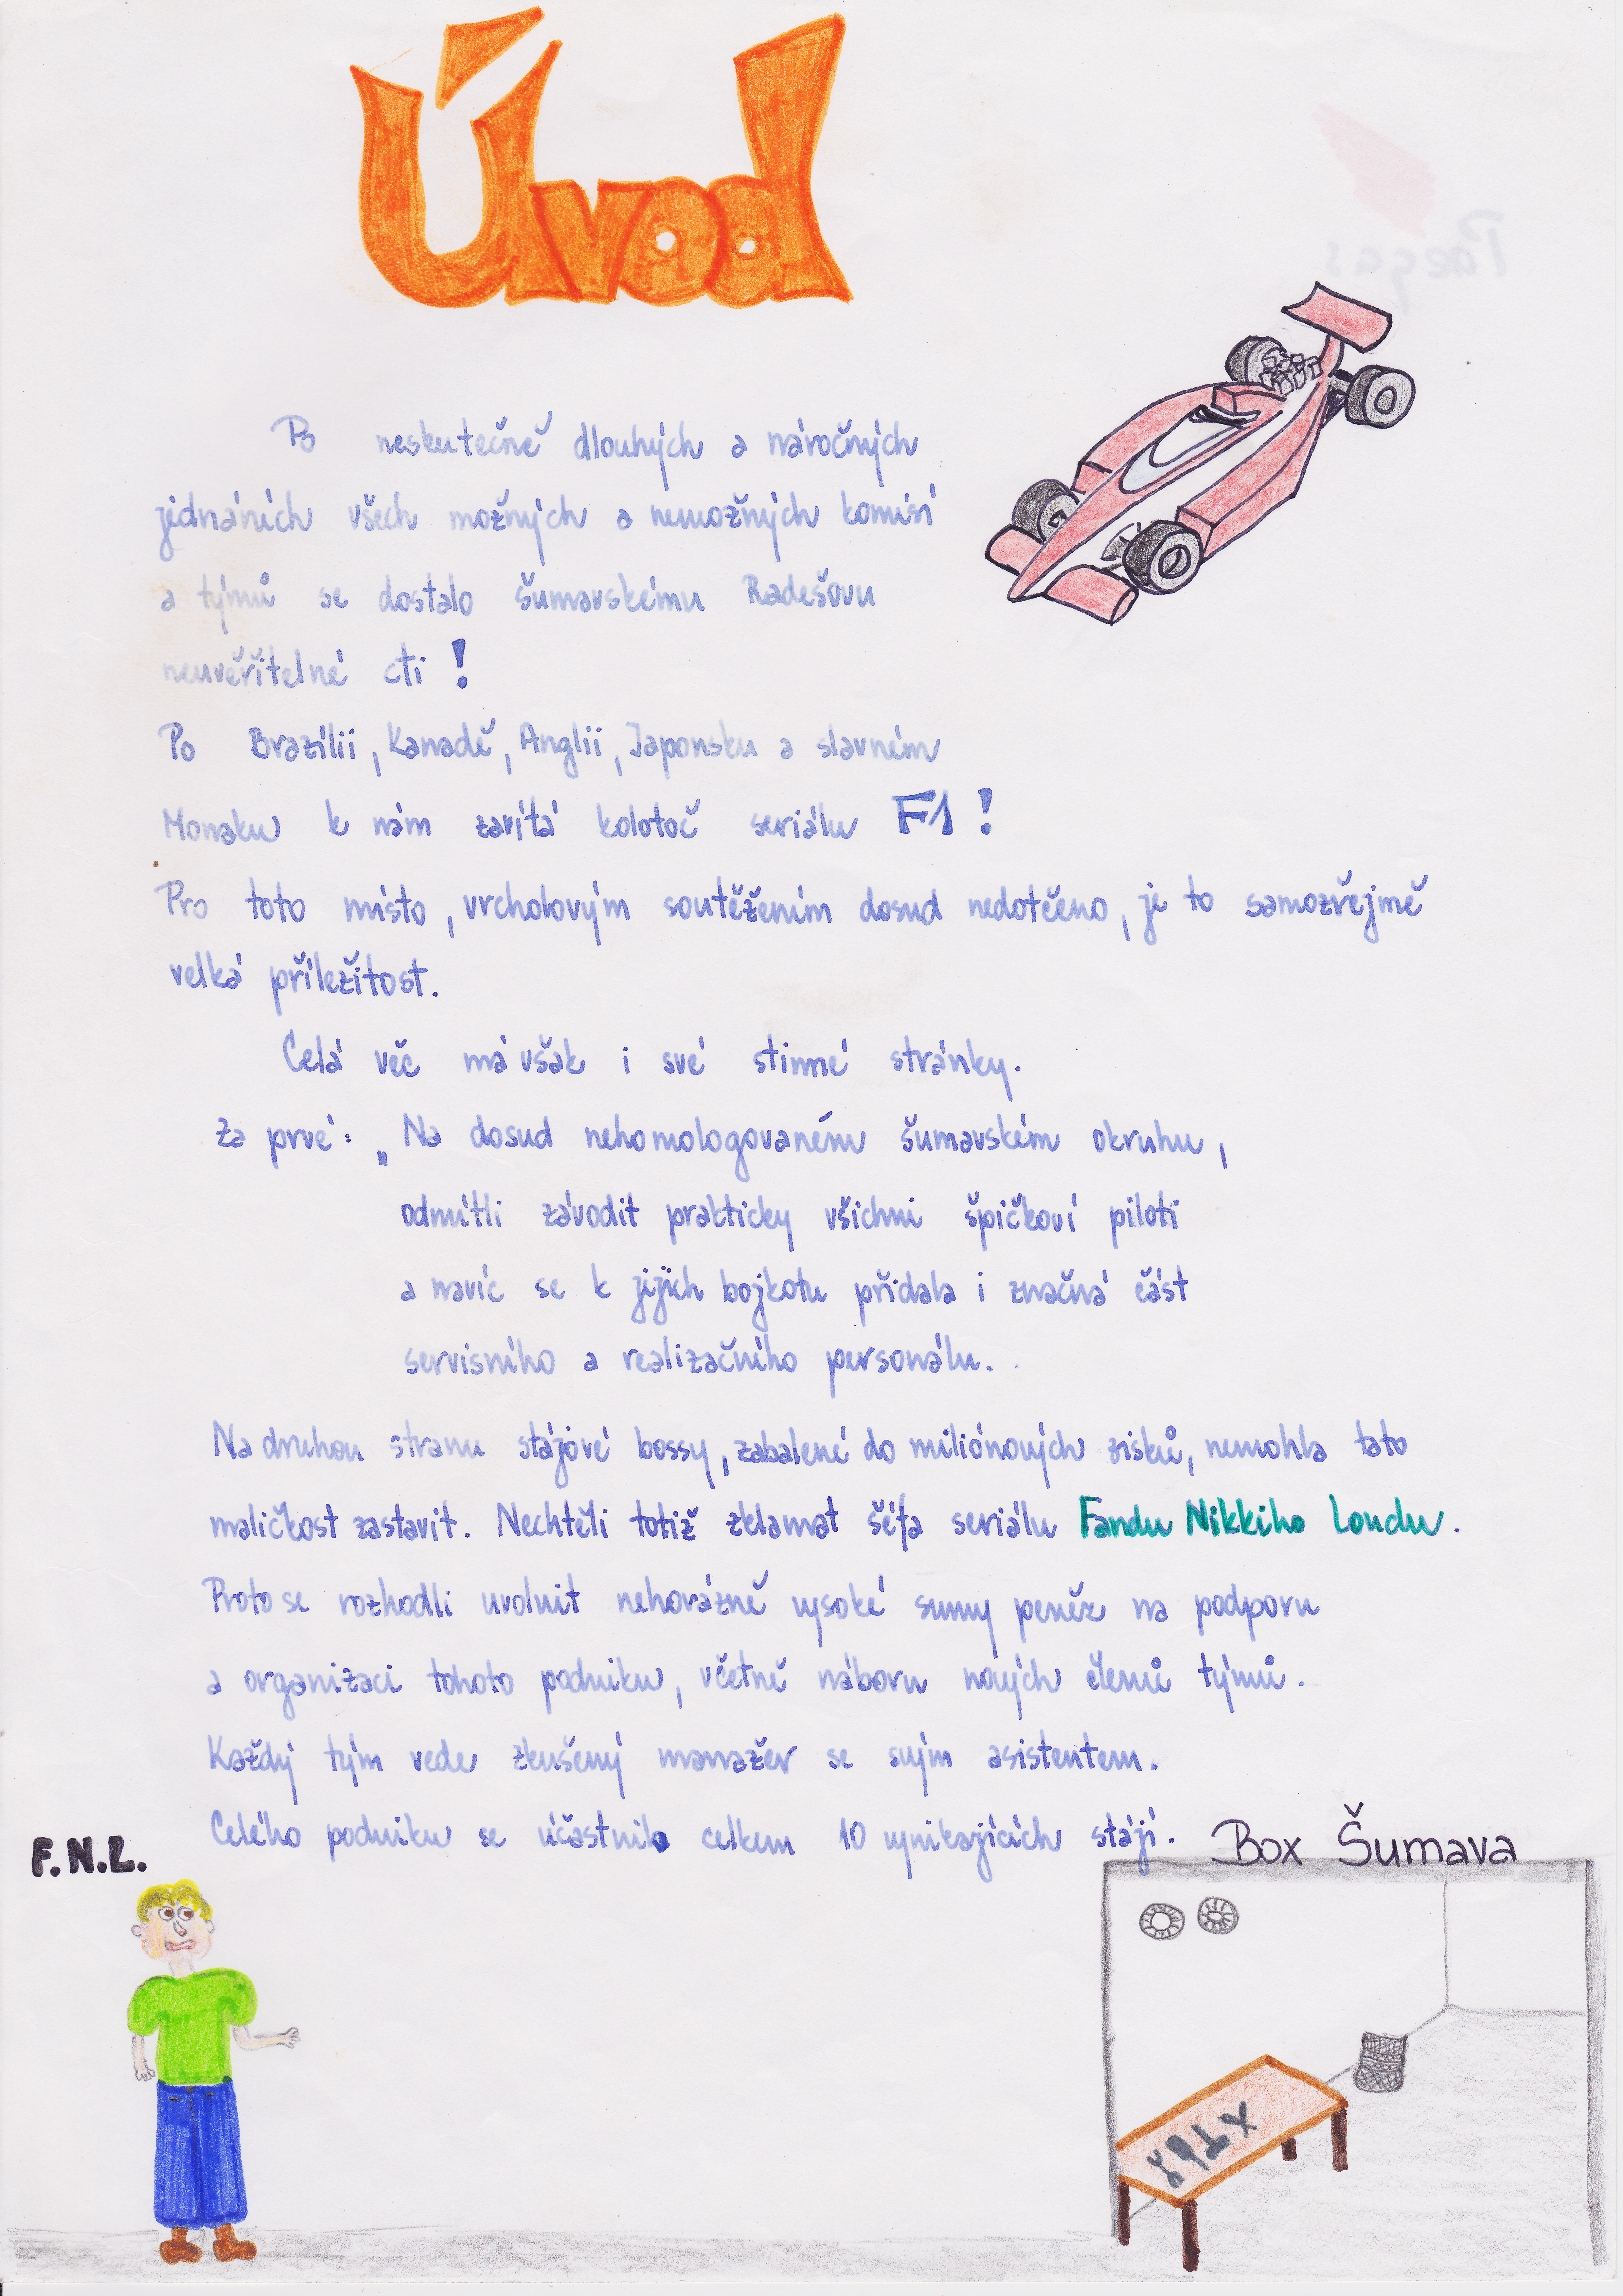 Úvod
Po neskutečně dlouhých a náročných
jednáních všech možných a nemožných komisí
a týmů se dostalo šumavskému Radešovu
neuvěřitelné cti!
Po Brazílii, Kanadě, Anglii, Japonsku a slavném
Monaku k nám zavítá kolotoč seriálu F1!
Pro toto místo, vrcholovým soutěžením dosud nedotčeno, je to samozřejmě
velká příležitost.
Celá věc má však i své stinné stránky.
Za prvé: „Na dosud nehomologovaném šumavském okruhu,
odmítli závodit prakticky všichni špičkoví piloti
a navíc se k jejich bojkotu přidala i značná část
servisního a realizačního personálu.
Na druhou stranu stájové bossy, zabalené do miliónových zisků, nemohla tato
maličkost zastavit. Nechtěli totiž zklamat šéfa seriálu Fandu Nikkiho Loudu.
Proto se rozhodli uvolnit nehorázně vysoké sumy peněz na podporu
a organizaci tohoto podniku, včetně náboru nových členů týmů.
Každý tým vede zkušený manažer se svým asistentem.
Celého podniku se účastnilo celkem 10 vynikajících stájí.
F.N.L.
Box Šumava